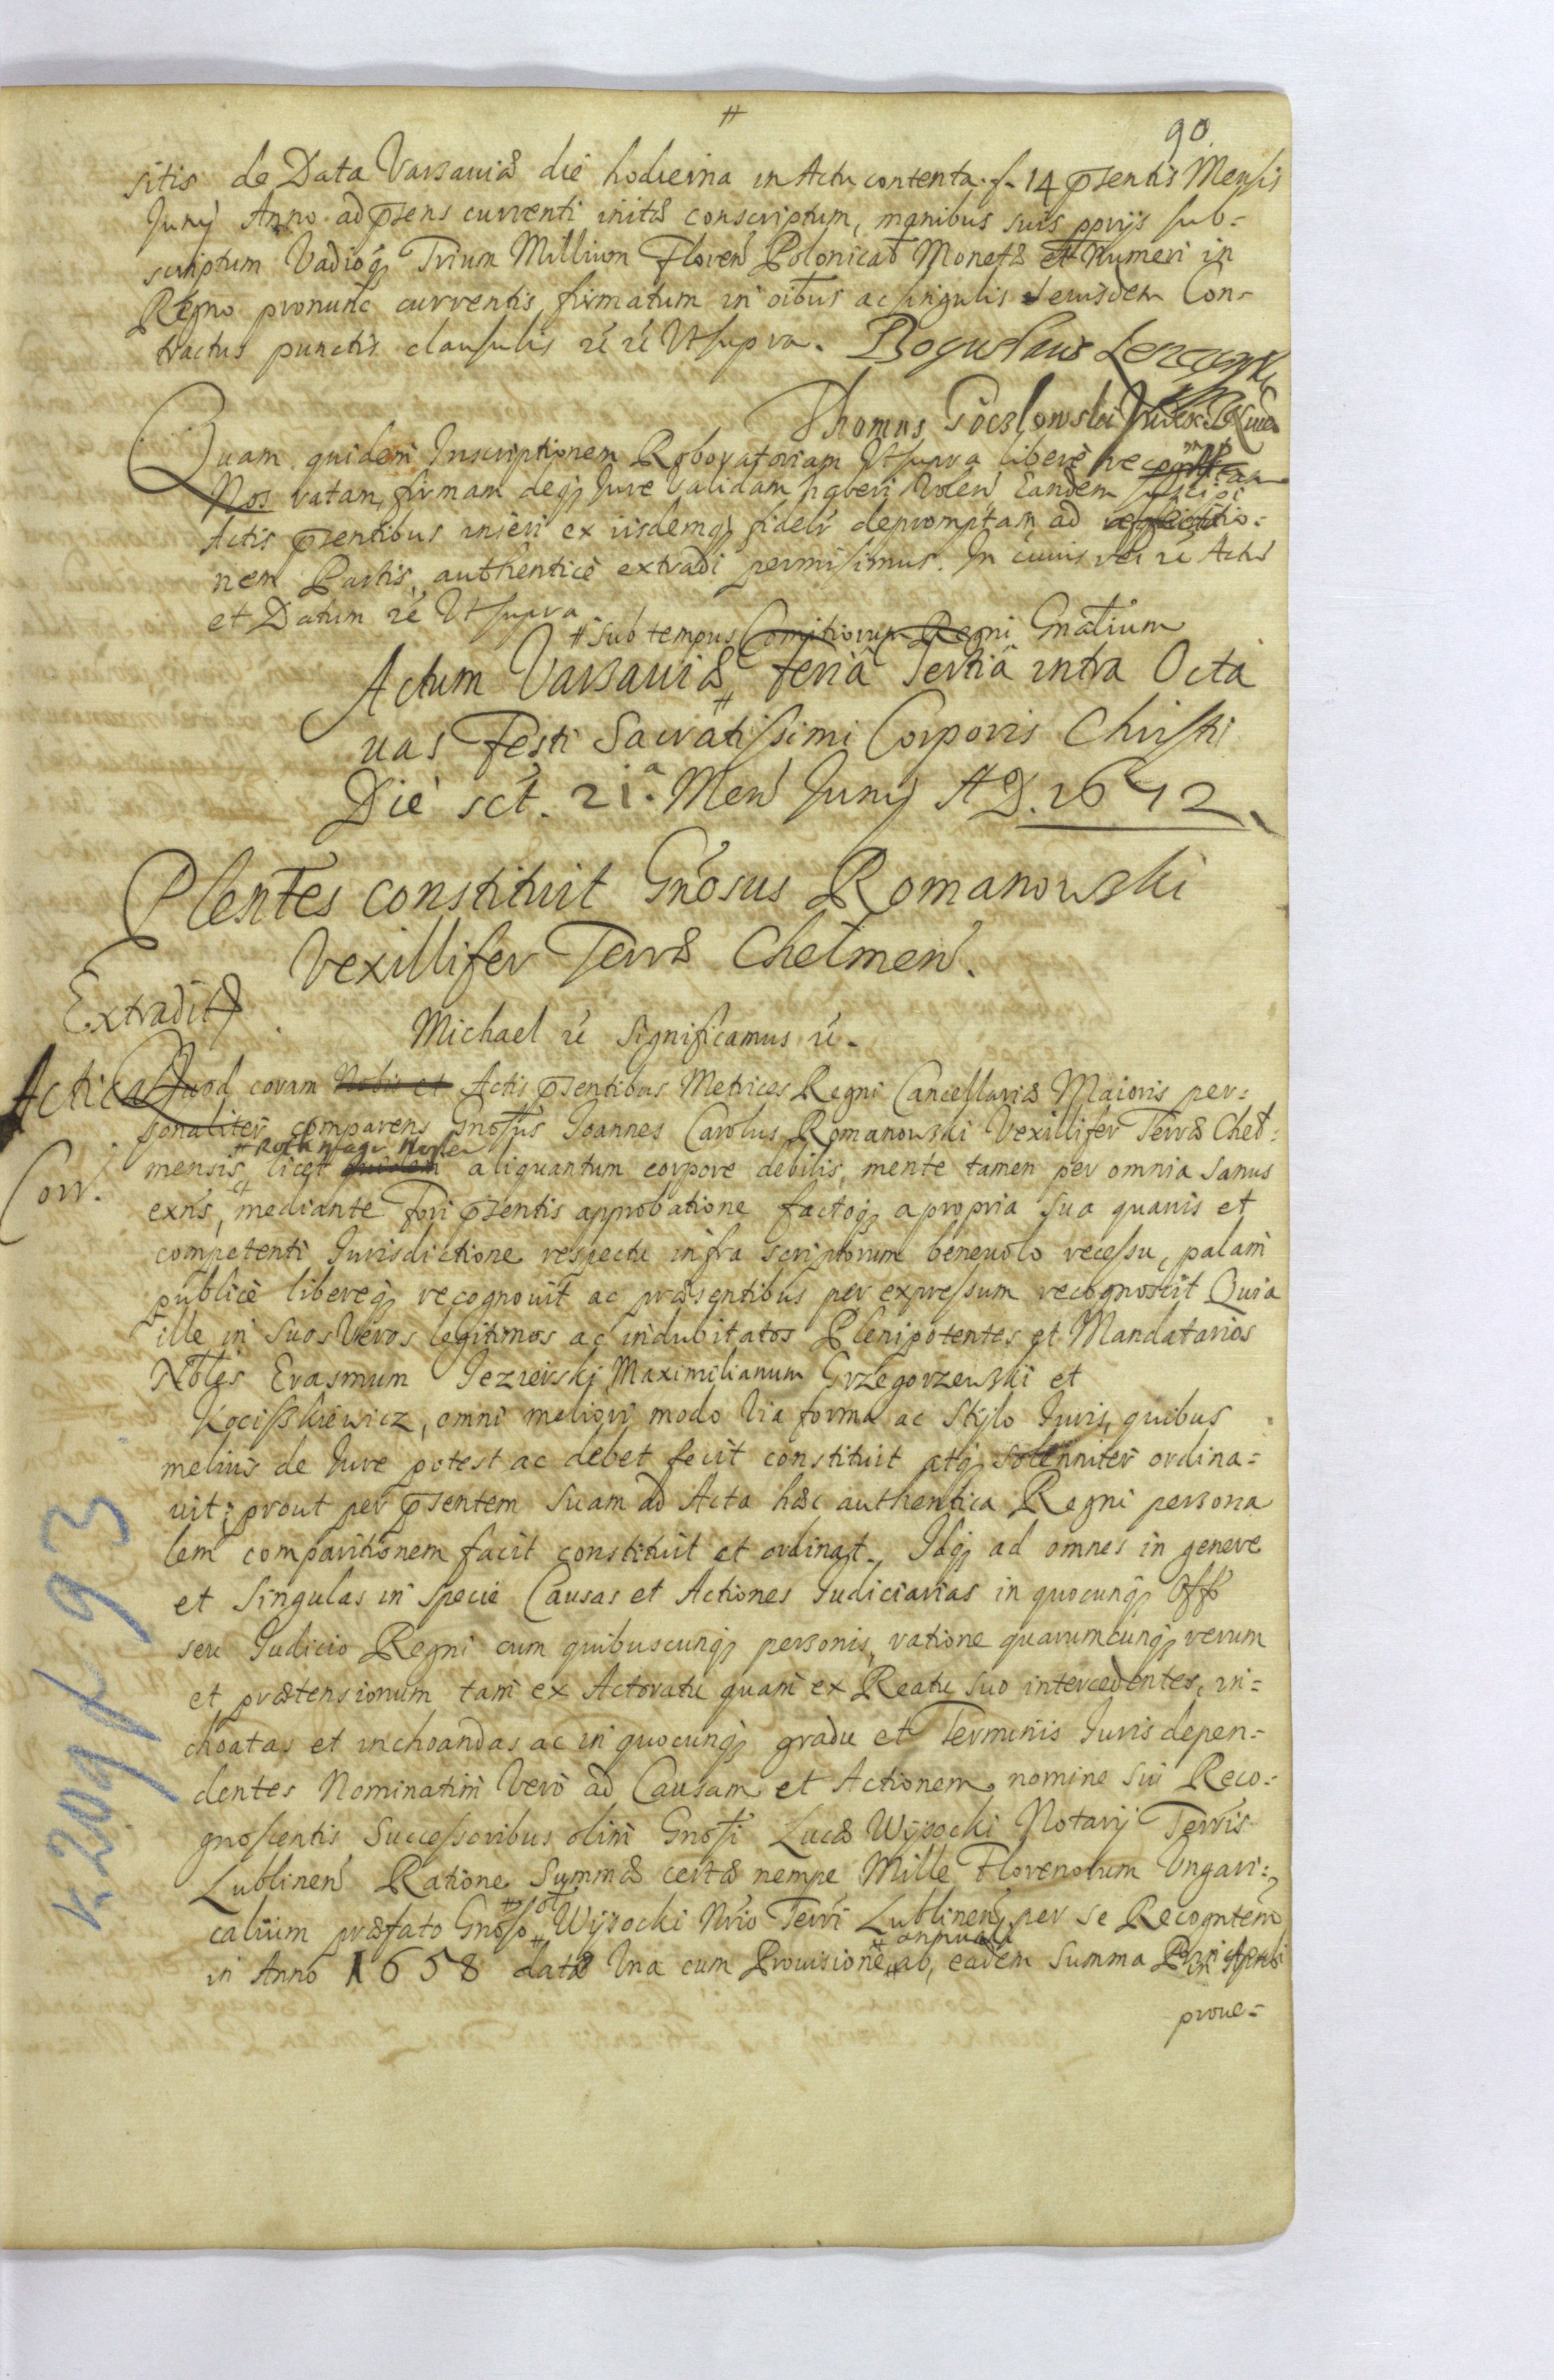 90.
sitis de Data Varsaviæ die hodierna in Actu contenta. f. 14 p͞sentis Mensis
Junij Anno ad p͞sens currenti initæ conscriptum, manibus suis pprijs sub-
scriptum Vadioq; Trium Millium Floren̄ Polonical̄ Monetæ et Numeri in
Regno pronunc currentis firmatum in oībus ac singulis eiusdem Con-
tractus punctis clausulis rc̄ rc̄ Vt supra. Boguslaus
Thomas
Quam quidem Inscriptionem Roboratoriam Vt supra libere
Nos ratam, firmam deq; Jure validam haberi volen̄ Eandem suscipi
Actis p͞sentibus inseri ex iisdemq; fideli depromptam ad
nem Partis, authentice extradi permisimus. In cuius rei rc̄ Actū
et Datum rc̄ Vt supra
# Sub tempus Comitiorum Regni Gn̄alium
Actum Varsaviæ # Feria Tertia intra Octa
vas Festi Sacratissimi Corporis Christi
Die sct̄. 21.a Men̄ Junij A D. 1672
Plen̄tes constituit Gn̄osus Romanowski
Vexillifer Terræ Chelmen̄.
Extradit
Michael rc̄ significamus rc̄.
Actica
Quod coram Nobis et Actis p͞sentibus Metrices Regni Cancellariæ Maioris per-
sonaliter comparens Gn̄osus Joannes Carolus Romanowski Vexillifer Terræ Chel-
Corr.
mensis, licet quidem aliquantum corpore debilis, mente tamen per omnia sanus
exn̄s, et mediante Fori p͞sentis approbatione factoq; a propria sua quavis et
competenti Jurisdictione respectu infra scriptorum benevolo recessu, palam
publice libereq; recognovit ac præsentibus per expressum recognoscit Quia
ille in suos veros legitimos ac indubitatos Plenipotentes et Mandatarios
Nobles Erasmum Jezierski Maximilianum Grzegorzewski et
Kociszkiewicz, omni meliori modo via forma ac stylo Juris, quibus
melius de Jure potest ac debet fecit constituit atq; solenniter ordina-
vit; prout per p͞sentem suam ad Acta hæc authentica Regni persona
lem comparitionem facit constituit et ordinat. Idq; ad omnes in genere
et singulas in specie Causas et Actiones Judiciarias in quocunq; Offo
seu Judicio Regni cum quibuscunq; personis, ratione quarumcunq; rerum
et prætensionum tam ex Actoratu quam ex Reatu suo intercedentes, in-
choatas et inchoandas ac in quocunq; gradu et Terminis Juris depen-
dentes Nominatim vero ad Causam et Actionem nomine sui Reco-
gnoscentis Successoribus olim Gn̄osi Lucæ Wysocki Notarij Terris
Lublinen̄ Ratione Summæ certæ nempe Mille Florenorum Ungari-
calium præfato Gn̄oso # ol̄ Wysocki Nrio Terri Lublinen̄ per se Recogntem̄
in Anno 1658 datæ Una cum Provisione # annuali ab eadem Summa
prove-
k. 209 / f 93